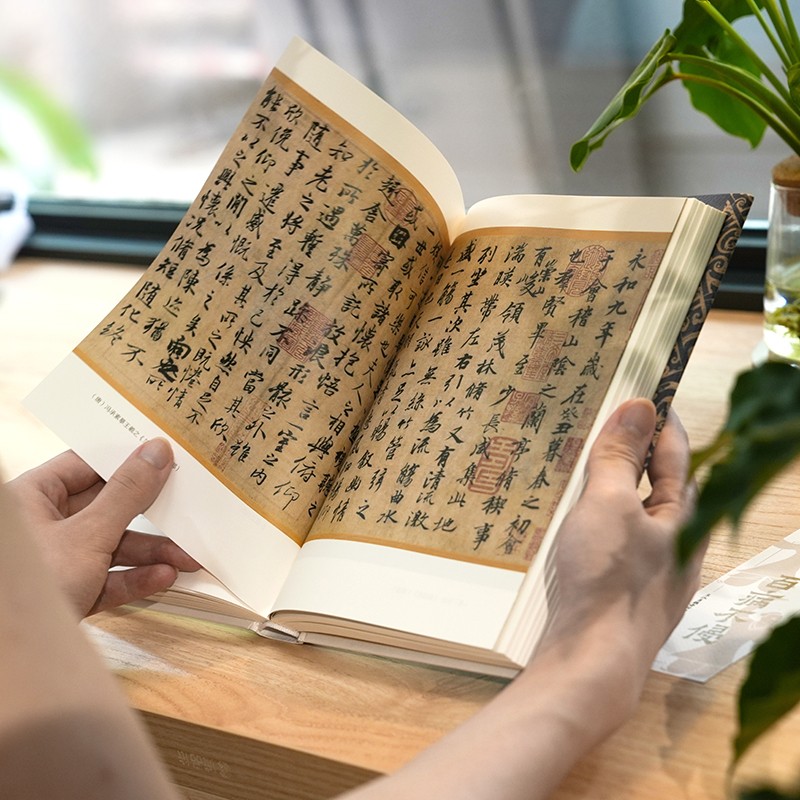 永和九年歲在癸丑暮春之初會
于會稽山陰之蘭亭脩稧事
也群賢畢至少長咸集此地
有崇山峻領茂林脩竹又有清流激
湍暎帶左右引以為流觴曲水
列坐其次雖無絲竹管弦之
盛一觴一詠亦足以暢敘幽情
信可樂也夫人之相與俯仰
一世或取諸懷抱悟言一室之內
或因寄所託放浪形骸之外雖
趣舍萬殊靜躁不同當其欣
於所遇蹔得於己怏然自足不
知老之將至及其所之既惓情
隨事遷感慨係之矣向之所
欣俛仰之閒以為陳迹猶不
能不以之興懷況脩短隨化終
（唐）冯承素摹王羲之《